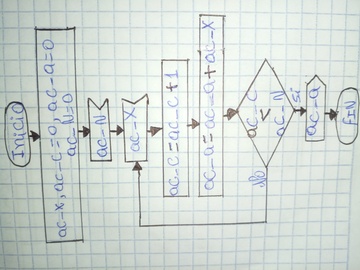 Inicio
ac-x, ac-c=0, ac-a=0
ac-N=0
ac-N
ac-X
ac-c=ac-c+1
ac-a=ac-a+ac-X
ac-c
<
ac-N
No
si
ac-a
FIN